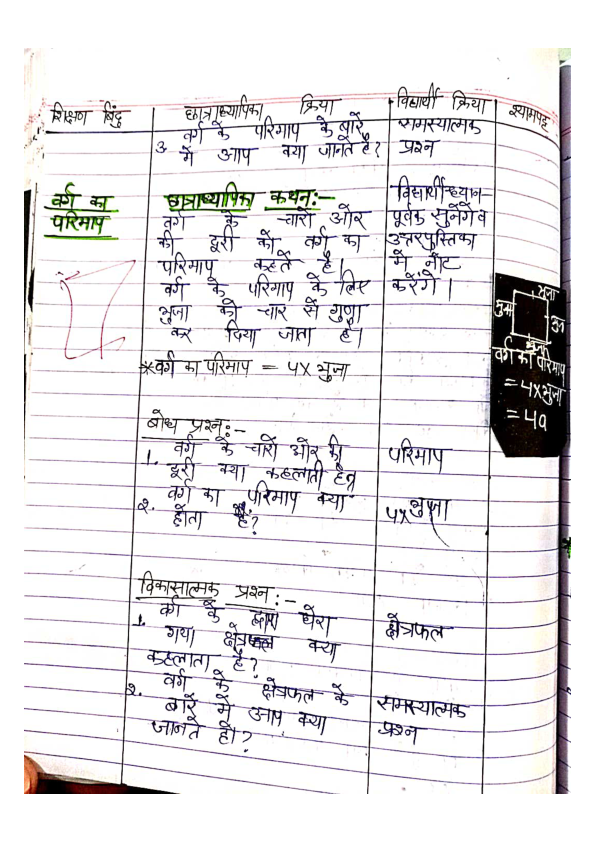 शिक्षण बिंदु
छात्राध्यापिका क्रिया
विद्यार्थी क्रिया
श्यामपट्ट
3. वर्ग के परिमाप के बारे
में आप क्या जानते है?
समस्यात्मक
प्रश्न
वर्ग का
परिमाप
छात्राध्यापिका कथन:-
वर्ग के चारों ओर
की दूरी को वर्ग का
परिमाप कहते है।
वर्ग के परिमाप के लिए
भुजा को चार से गुणा
कर दिया जाता है।
*वर्ग का परिमाप = 4x भुजा
विद्यार्थी ध्यान-
पूर्वक सुनेंगे व
उत्तरपुस्तिका
में नोट
करेंगे।
भुजा
भुजा
भुजा
भुजा
वर्ग का परिमाप
= 4xभुजा
= 4a
बोध प्रश्न:-
1. वर्ग के चारों ओर की
दूरी क्या कहलाती
परिमाप
2. वर्ग का परिमाप क्या
होता है?
4x भुजा
विकासात्मक प्रश्न:-
1. वर्ग के द्वारा घेरा
गया क्षेत्रफल क्या
कहलाता है?
क्षेत्रफल
2. वर्ग के क्षेत्रफल के
बारे में आप क्या
जानते हो?
समस्यात्मक
प्रश्न